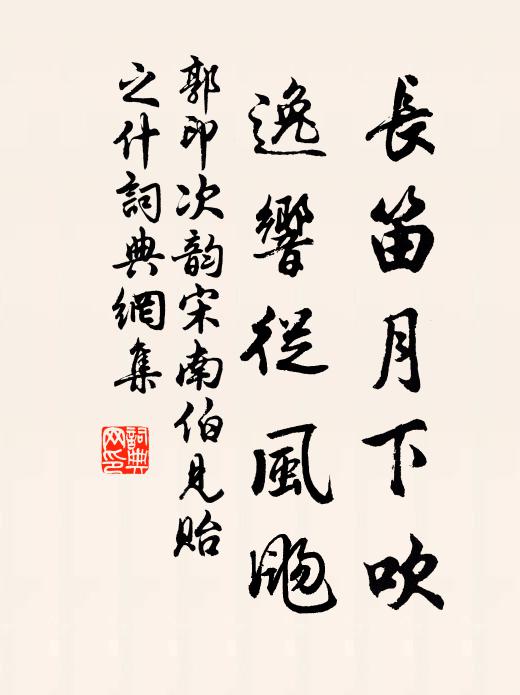 長笛月下吹
逸響從風颺
郭印次韵宋南伯見貽
之什詞典網集
詞典
网印